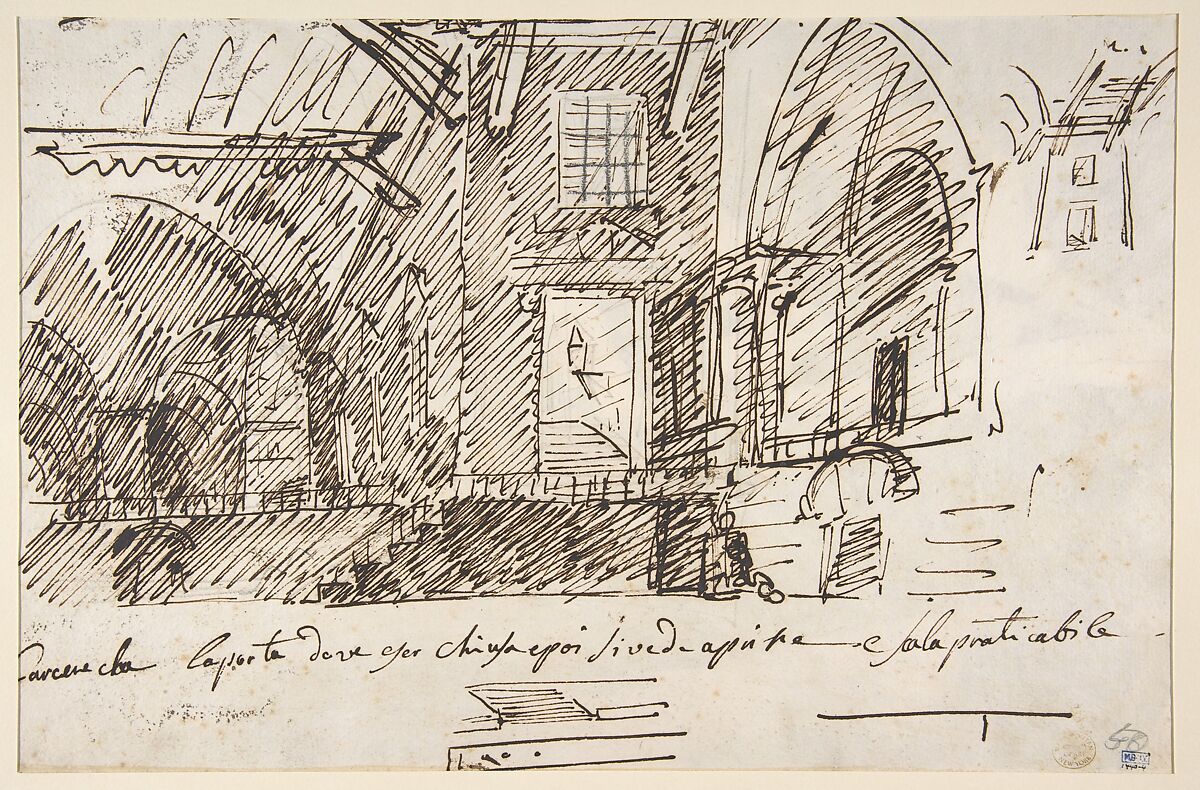 Carcere che la porta deve eser chiusa e poi si vede aprire e scala praticabile
58
NEW YORK